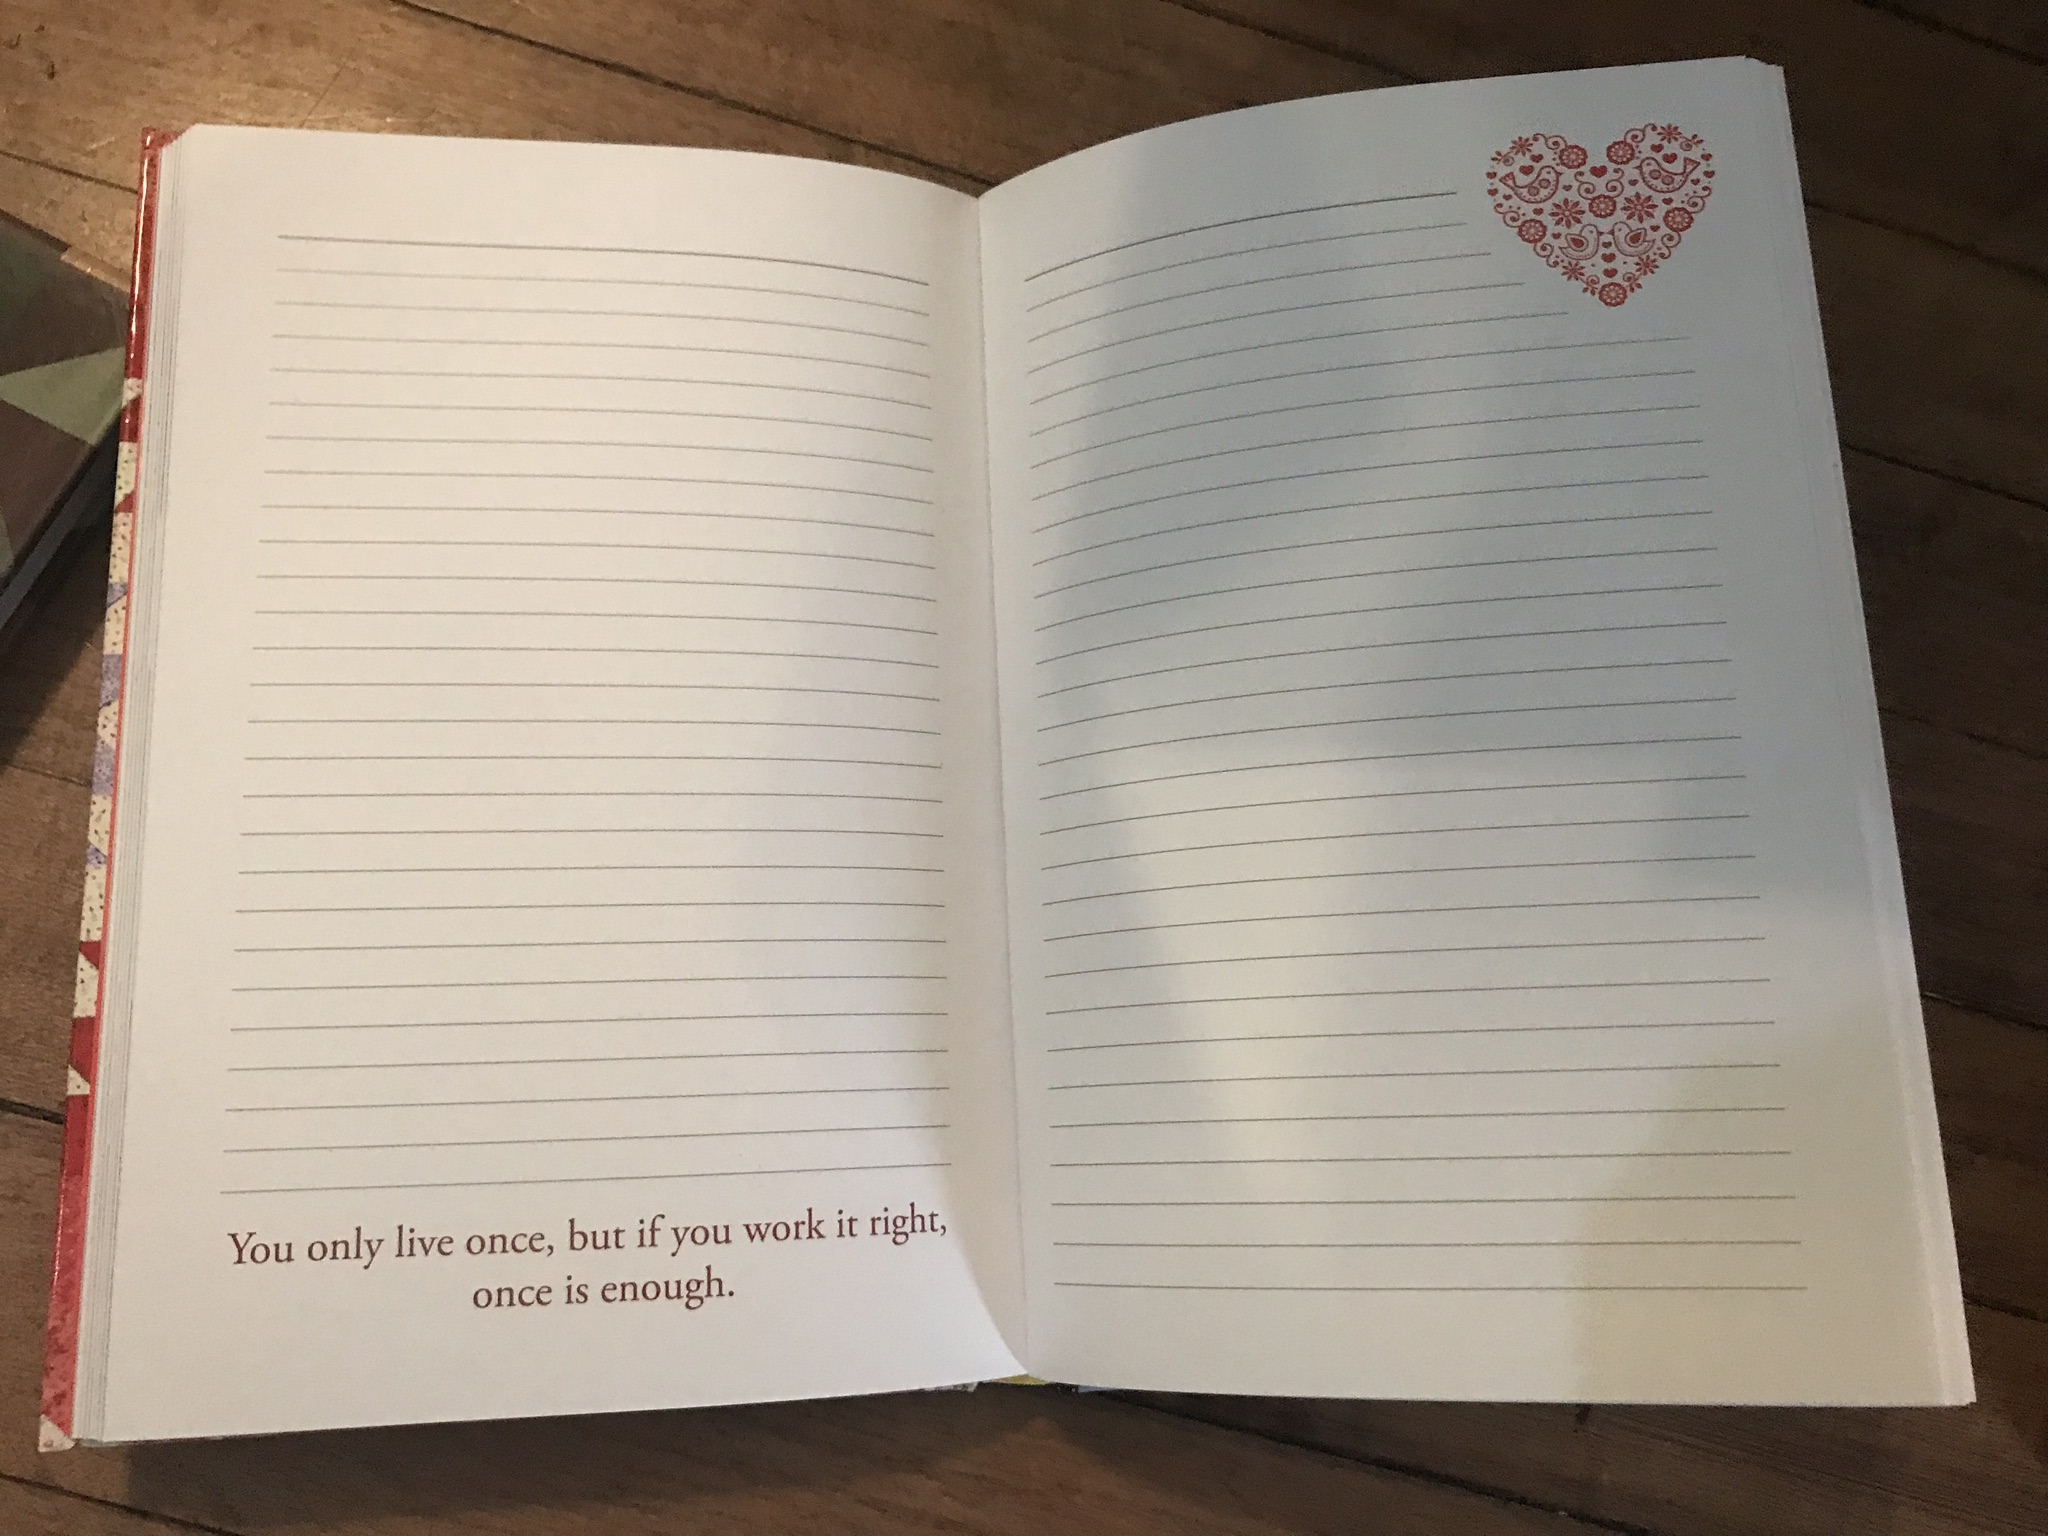 You only live once, but if you work it right,
once is enough.